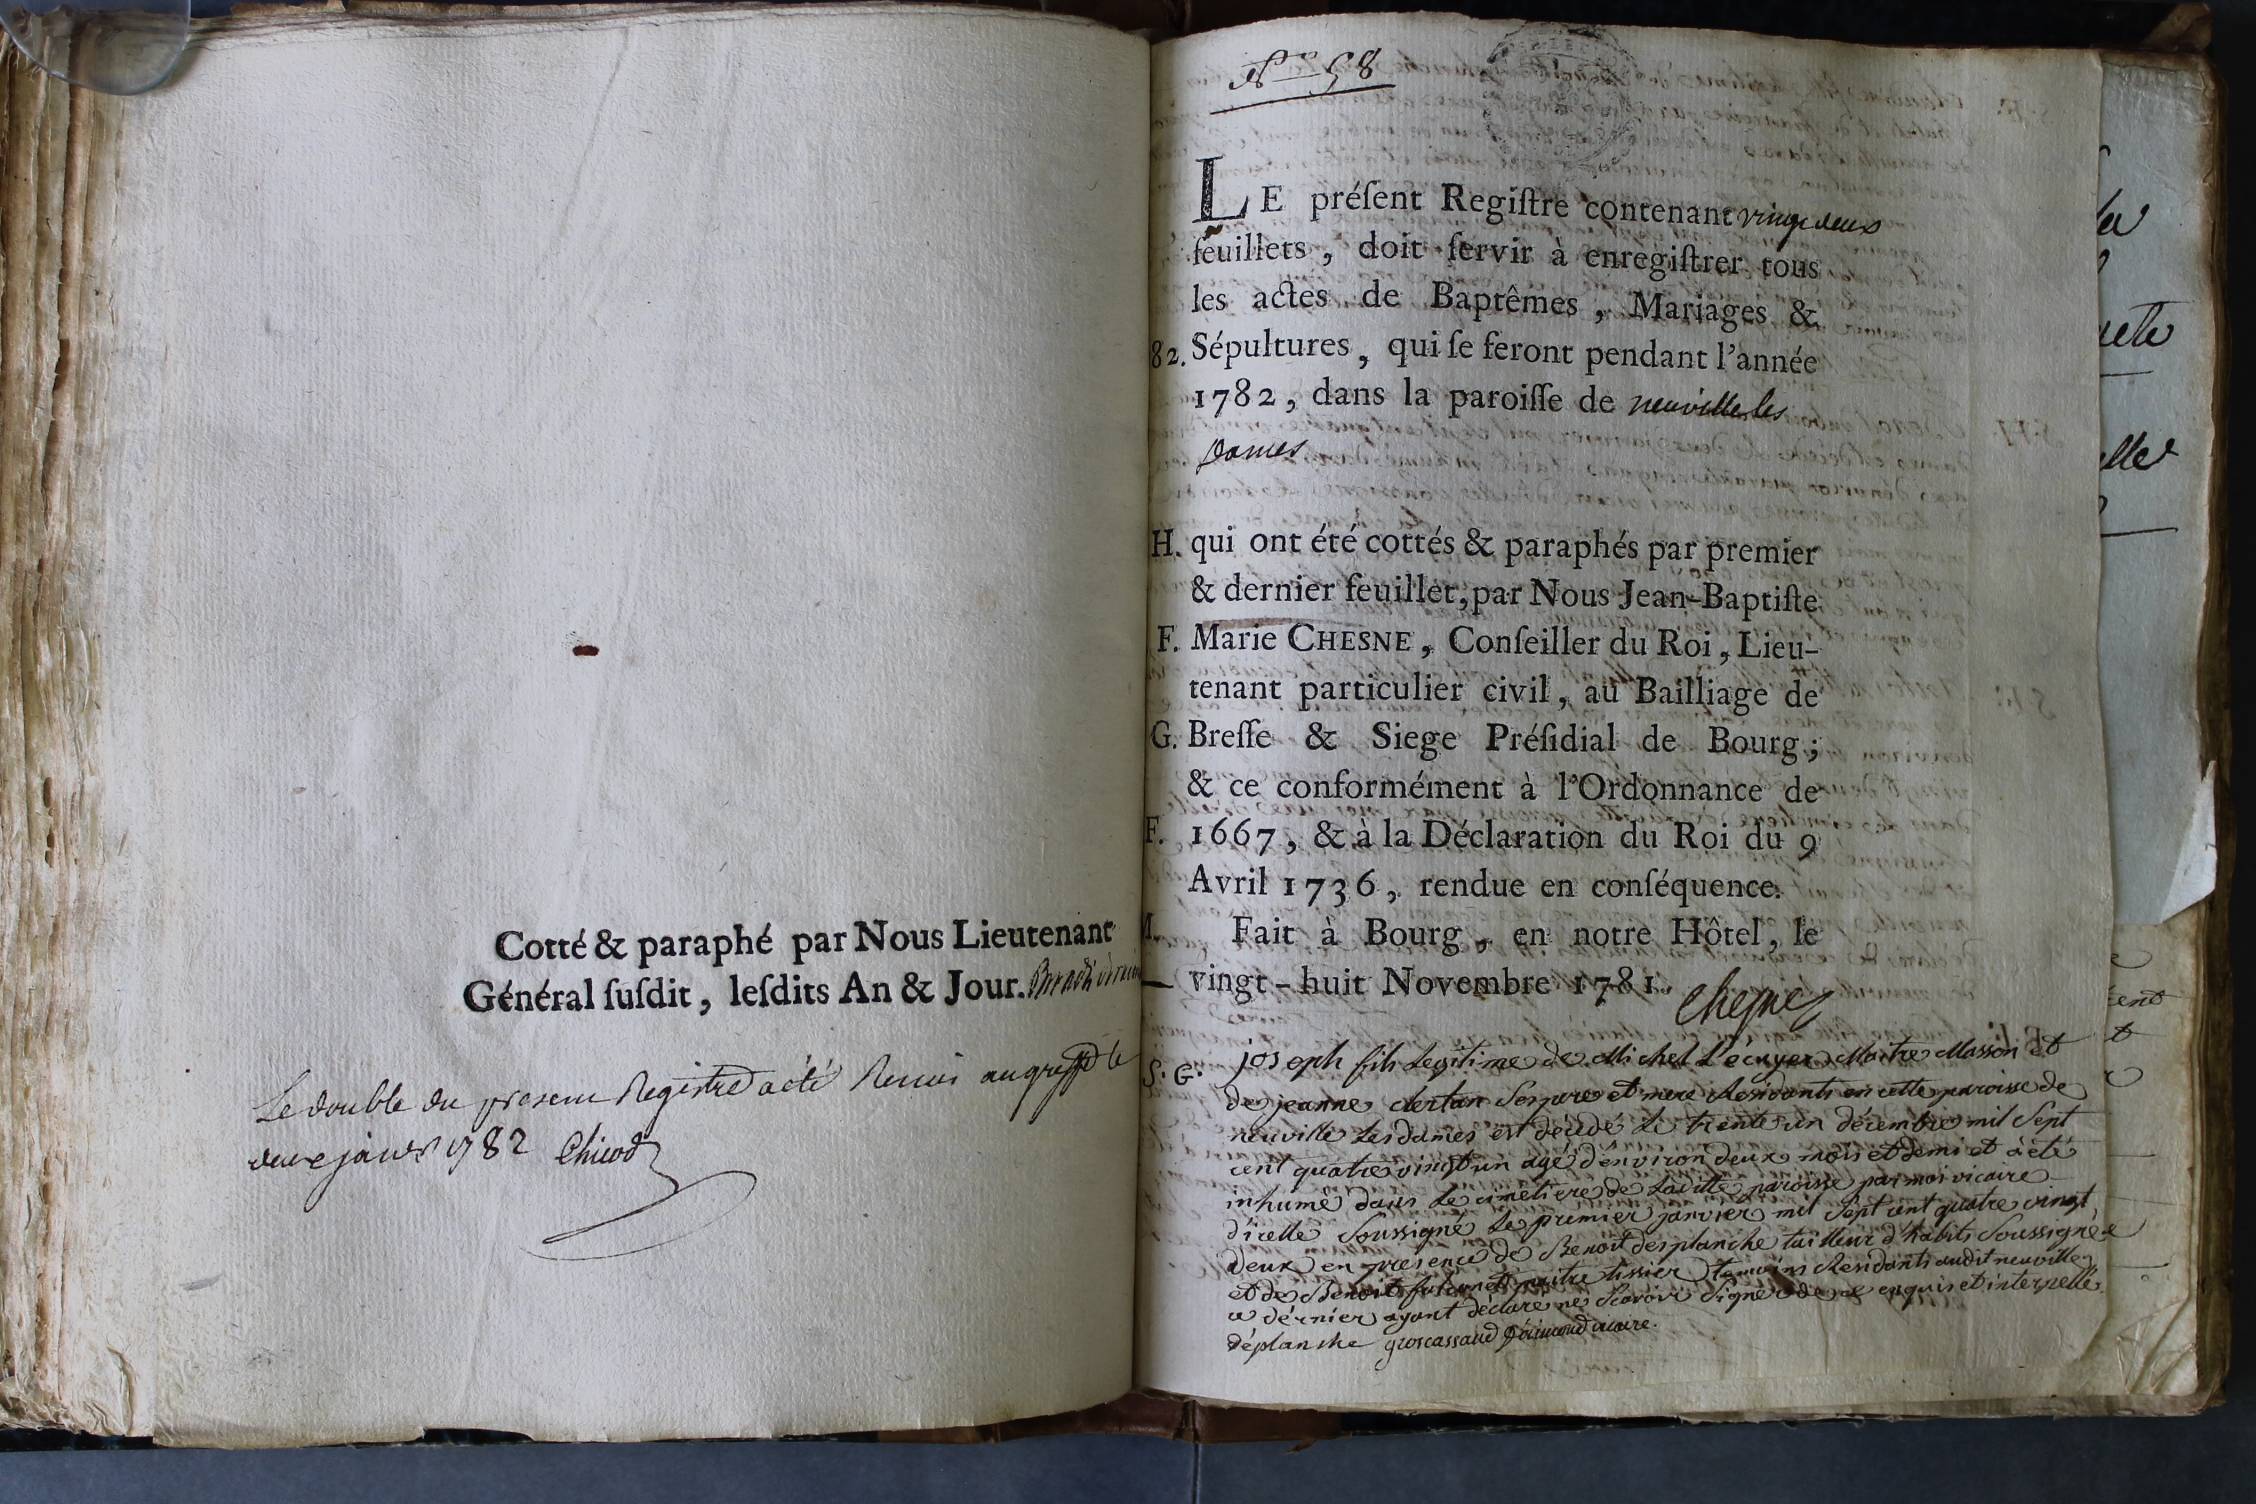 Cotté & paraphé par Nous Lieutenant
Général ſuſdit, leſdits An & Jour.
Le double du present Registre a été Remis au greffe le
janvr 1782 Chicod
No 58
LE préſent Regiſtre contenant vingt deux
feuillets, doit ſervir à enregiſtrer tous
les actes de Baptêmes, Mariages &
82. Sépultures, qui ſe feront pendant l'année
1782, dans la paroiſſe de neuville les
Dames
H. qui ont été cottés & paraphés par premier
& dernier feuillet, par Nous Jean-Baptiſte
F. Marie CHESNE, Conſeiller du Roi, Lieu-
tenant particulier civil, au Bailliage de
G. Breſſe & Siege Préſidial de Bourg;
& ce conformément à l'Ordonnance de
F. 1667, & à la Déclaration du Roi du 9
Avril 1736, rendue en conſéquence.
Fait à Bourg, en notre Hôtel, le
vingt-huit Novembre 1781.
Chesne
S. G. joseph fils Legitime de Michel L'écuyer Maitre Masson et
de jeanne clertan Ses pere et mere Residants en cette paroisse de
neuville Les dames est décédé Le trente un décembre mil Sept
cent quatre vingt un agé d'environ deux mois et demi et à été
inhumé dans Le cimetiere de Laditte paroisse par moi vicaire
d'icelle Soussigné Le premier janvier mil Sept cent quatre vingt
deux en presence de Benoit desplanche tailleur d'habits Soussigné
et de Benoit maitre tissier temoins Residants audit neuville
ce dérnier ayant déclaré ne Scavoir Signer de ce enquis et interpellé
déplanche groscassand vicaire.